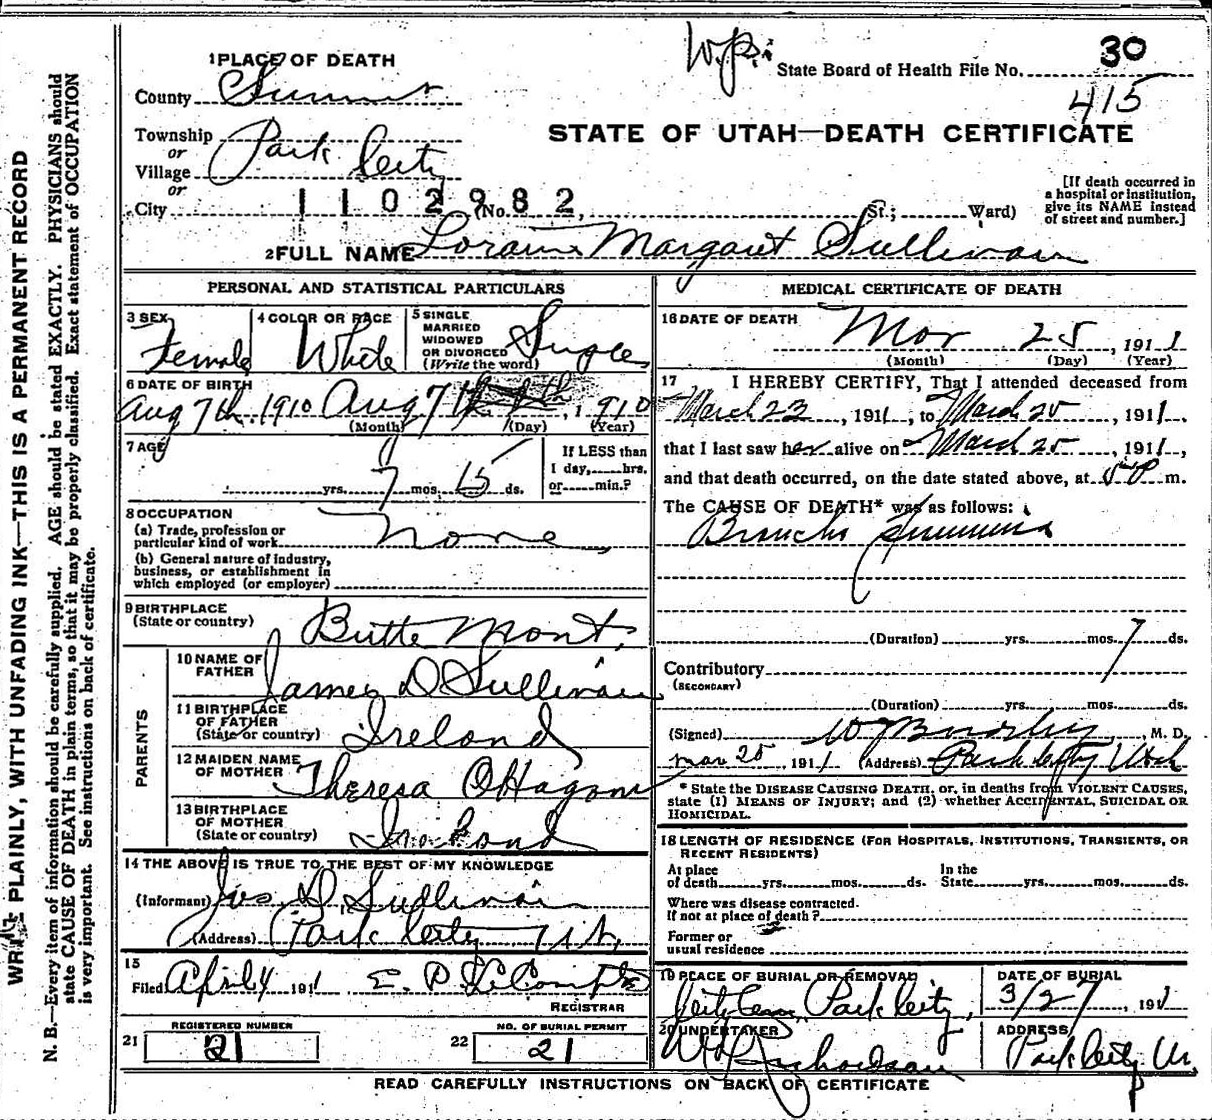 WRITE PLAINLY, WITH UNFADING INK—THIS IS A PERMANENT RECORD
N. B.—Every item of information should be carefully supplied. AGE should be stated EXACTLY. PHYSICIANS should
state CAUSE OF DEATH in plain terms, so that it may be properly classified. Exact statement of OCCUPATION
is very important. See instructions on back of certificate.
1 PLACE OF DEATH
State Board of Health File No. 30
415
County Summit
STATE OF UTAH—DEATH CERTIFICATE
Township
or
Village Park City
or
City
1102982
(No. St.; Ward)
[If death occurred in
a hospital or institution,
give its NAME instead
of street and number.]
2 FULL NAME Loraine Margaret Sullivan
PERSONAL AND STATISTICAL PARTICULARS
3 SEX
Female
4 COLOR OR RACE
White
5 SINGLE
MARRIED
WIDOWED
OR DIVORCED
(Write the word)
Single
6 DATE OF BIRTH
Aug 7th, 1910 Aug 7th, 1910
(Month) (Day) (Year)
7 AGE
yrs. 7 mos. 15 ds.
If LESS than
1 day, hrs.
or min.?
8 OCCUPATION
(a) Trade, profession or
particular kind of work None
(b) General nature of industry,
business, or establishment in
which employed (or employer)
9 BIRTHPLACE
(State or country) Butte Mont.
PARENTS
10 NAME OF
FATHER James D Sullivan
11 BIRTHPLACE
OF FATHER
(State or country) Ireland
12 MAIDEN NAME
OF MOTHER Theresa O'Hagan
13 BIRTHPLACE
OF MOTHER
(State or country) Ireland
14 THE ABOVE IS TRUE TO THE BEST OF MY KNOWLEDGE
(Informant) Jas. D. Sullivan
(Address) Park City Ut,
15
Filed April 4 1911 E. P. LeCompte
REGISTRAR
21 REGISTERED NUMBER
21
22 NO. OF BURIAL PERMIT
21
MEDICAL CERTIFICATE OF DEATH
16 DATE OF DEATH
Mar 25, 1911
(Month) (Day) (Year)
17 I HEREBY CERTIFY, That I attended deceased from
March 23, 1911, to March 25, 1911,
that I last saw her alive on March 25, 1911,
and that death occurred, on the date stated above, at 5 P m.
The CAUSE OF DEATH* was as follows:
Broncho
(Duration) yrs. mos. 7 ds.
Contributory
(SECONDARY)
(Duration) yrs. mos. ds.
(Signed) , M. D.
Mar 25, 1911 (Address) Park City Utah
* State the DISEASE CAUSING DEATH, or, in deaths from VIOLENT CAUSES,
state (1) MEANS OF INJURY; and (2) whether ACCIDENTAL, SUICIDAL OR
HOMICIDAL.
18 LENGTH OF RESIDENCE (FOR HOSPITALS, INSTITUTIONS, TRANSIENTS, OR
RECENT RESIDENTS)
At place
of death yrs. mos. ds.
In the
State yrs. mos. ds.
Where was disease contracted.
If not at place of death?
Former or
usual residence
19 PLACE OF BURIAL OR REMOVAL
City Cem, Park City,
DATE OF BURIAL
3/27, 1911
20 UNDERTAKER
Richardson
ADDRESS
Park City Ut.
READ CAREFULLY INSTRUCTIONS ON BACK OF CERTIFICATE